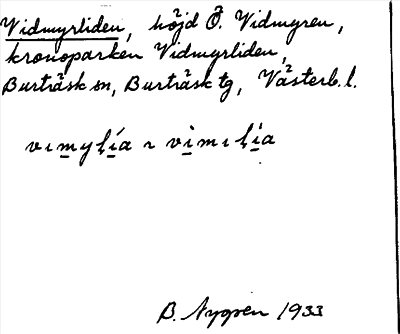 Vidmyrliden, höjd Ö. Vidmyren,
kronoparken Vidmyrliden,
Burträsk sn, Burträsk tg, Västerb. l.
B. Nygren 1933